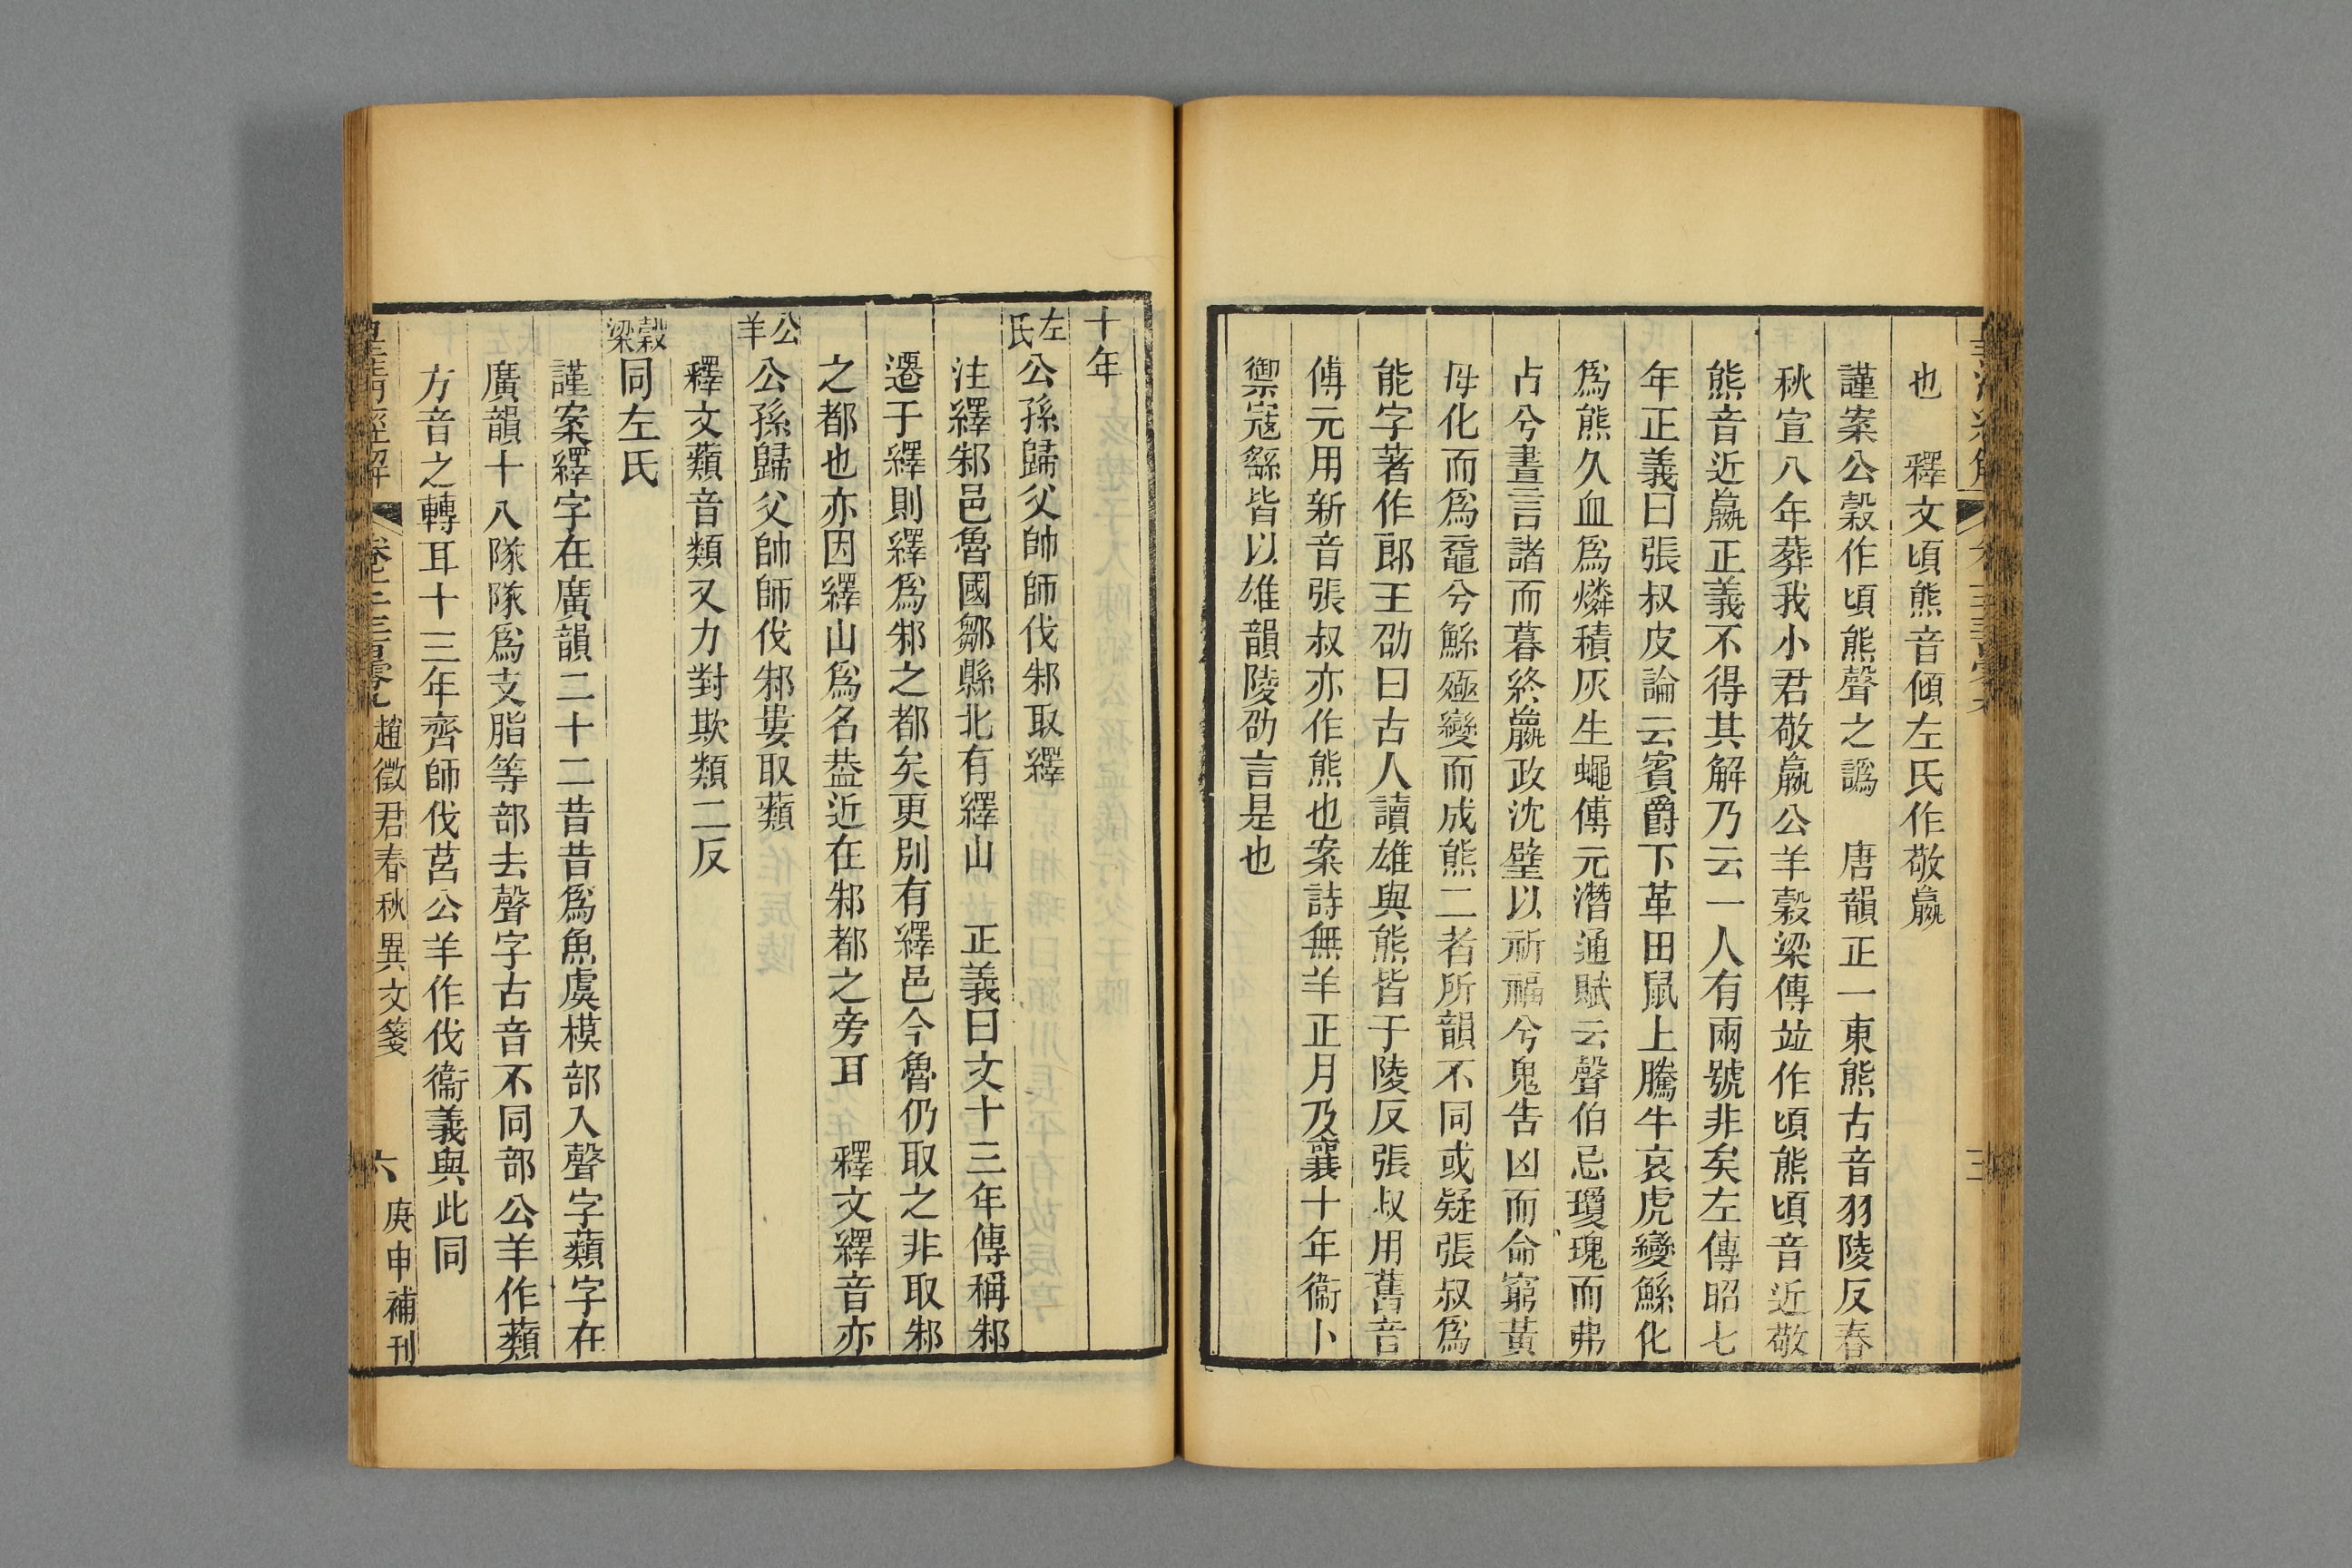 也　釋文頃熊音傾左氏作敬嬴
謹案公穀作頃熊聲之譌　唐韻正一東熊古音羽陵反春
秋宣八年葬我小君敬嬴公羊穀梁傳竝作頃熊頃音近敬
熊音近嬴正義不得其解乃云一人有兩號非矣左傳昭七
年正義曰張叔皮論云賓爵下革田鼠上騰牛哀虎變鯀化
爲熊久血爲燐積灰生蠅傅元潛通賦云聲伯忌瓊瑰而弗
占兮晝言諸而暮終嬴政沈璧以祈福兮鬼告凶而命窮黃
母化而爲黿兮鯀殛變而成熊二者所韻不同或疑張叔爲
能字著作郎王劭曰古人讀雄與熊皆于陵反張叔用舊音
傅元用新音張叔亦作熊也案詩無羊正月乃襄十年衞卜
禦寇繇皆以雄韻陵劭言是也
十年
左氏公孫歸父帥師伐邾取繹
注繹邾邑魯國鄒縣北有繹山　正義曰文十三年傳稱邾
遷于繹則繹爲邾之都矣更別有繹邑今魯仍取之非取邾
之都也亦因繹山爲名葢近在邾都之旁耳　釋文繹音亦
公羊公孫歸父帥師伐邾婁取蘱
釋文蘱音類又力對欺類二反
穀梁同左氏
謹案繹字在廣韻二十二昔昔爲魚虞模部入聲字蘱字在
廣韻十八隊隊爲支脂等部去聲字古音不同部公羊作蘱
方音之轉耳十三年齊師伐莒公羊作伐衞義與此同
皇淸經解　卷千三百零九　趙徵君春秋異文箋　六　庚申補刊